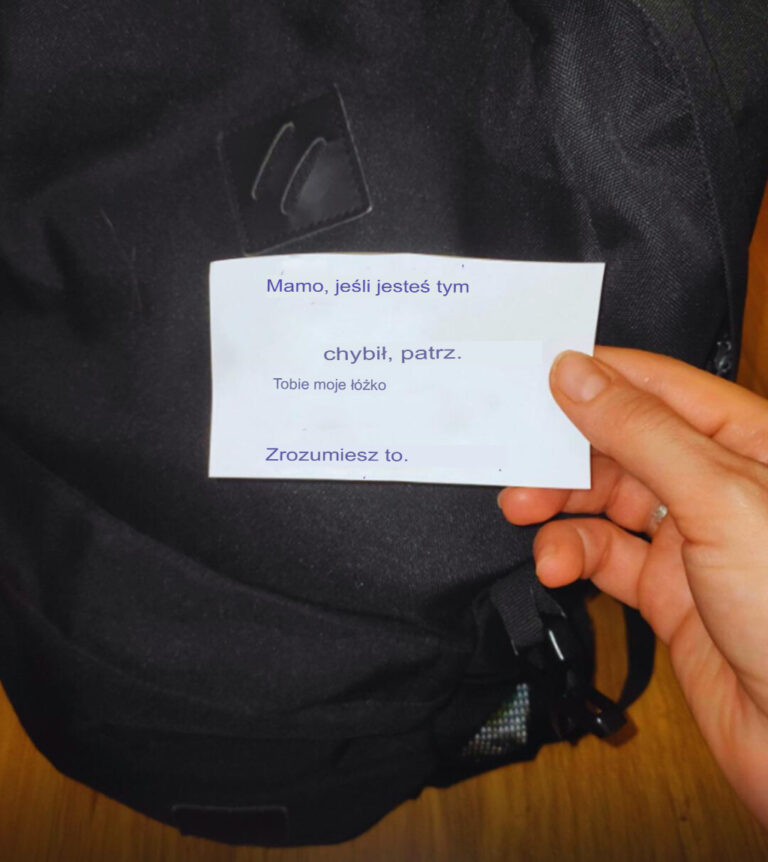 Mamo, jeśli jesteś tym
chybił, patrz.
Tobie moje łóżko
Zrozumiesz to.